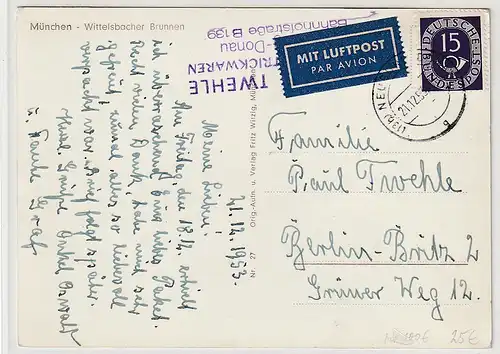 München - Wittelsbacher Brunnen
Bahnhofstraße B 199
-Donau
TRICKWAREN
TWEHLE
MIT LUFTPOST
PAR AVION
DEUTSCHE
15
BUNDESPOST
NEU
21.12.5
Orig.-Aufn. u. Verlag Fritz Witzig, München
Nr. 27
21.12.1953.
Meine Lieben!
Am Freitag, den 18.12. erhielt
ich überraschung Eure liebes Paket.
Recht vielen Dank, habe mich sehr
gefreut, zumal alles so liebevoll
verpackt war. Brief folgt später.
Grüße Onkel Oswalt
u. Tante Gret
Familie
Paul Twehle
Berlin-Britz 2
Grüner Weg 12.
25€